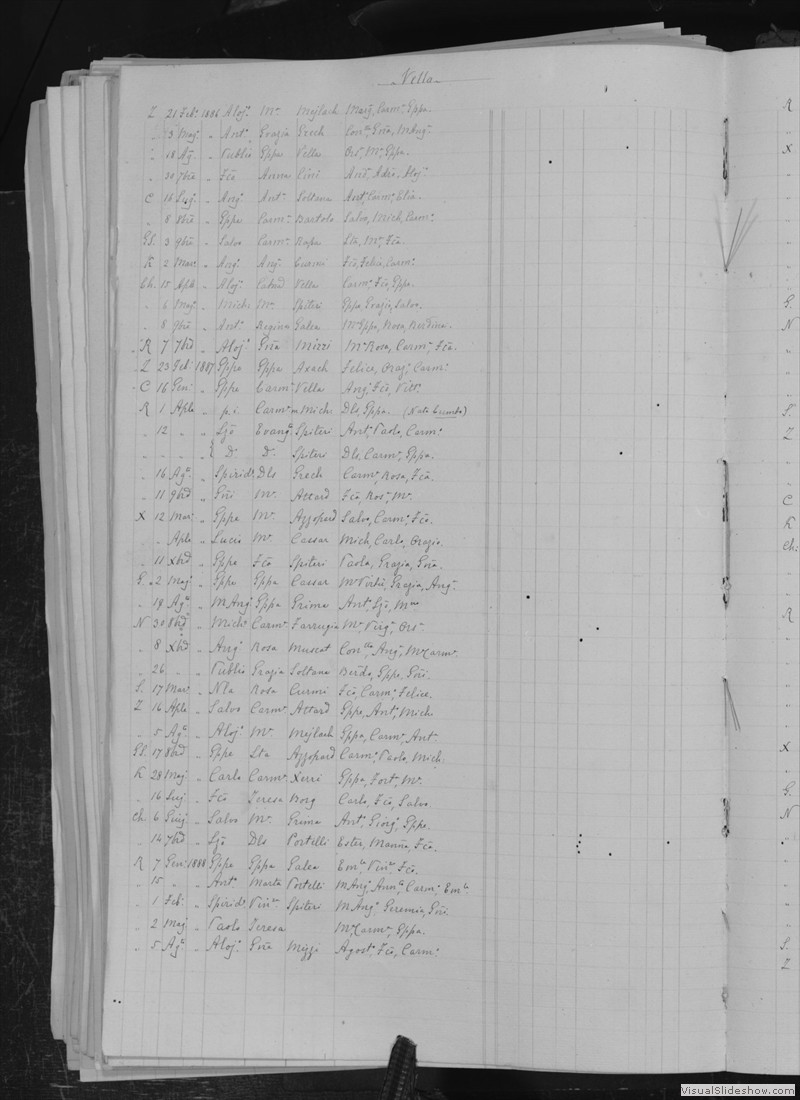 Vella
Z 21 Feb. 1886 Aloj. Mª Mejlach Marij, Carmª, Gppa.
3 Maj. " Ant. Grazia Grech Conª, Gna, M Ang.
18 Ag. " Publio Gppa Vella Ors. Mª, Gppa.
20 7bre " Fco Anna Ant, Adeo, Aloj.
C 16 Lug. " Ang. Ant. Soltana Ant, Carmª, Elia.
8 8bre " Gppe Carmª Bartolo Salvo, Mich, Carmª
GS. 3 9bre " Salvo Carmª Mª, Fco.
K 2 Mar. " Ang. Ang. Curmi Fco, Felice, Carmª
Ch. 15 Aple " Aloj. Vella Carmª, Fco, Gppe.
6 Maj. " Mich. Mª Spiteri Gppa, Grazia, Salvo.
8 9bre " Ant. Regina Galea Mª Gppa, Rosa, Berdina.
R 7 7brd " Aloj. Gna Mizzi Mª Rosa, Carmª, Fco.
Z 23 Feb. 1887 Gppe Gppa Axach Felice, Oraz. Carmª
C 16 Gen. " Gppe Carmª Vella Ang. Fco, Vittª
R 1 Aple " p.i. Carmª Mich. Dls, Gppa.
12 " " Ljo Evangª Spiteri Ant. Paolo, Carmª
" " " D. D. Spiteri Dls, Carmª, Gppa.
16 Agº " Spirid. Dls Grech Carmª, Rosa, Fco.
11 9brd " Gni Mª Attard Fco, Rosª, Mª
X 12 Mar. " Gppe Mª Azzopard Salvo, Carmª, Fco.
Aple " Lucio Mª Cassar Mich, Carlo, Orazio.
11 Xbrd " Gppe Fca Spiteri Paola, Grazia, Gna.
G. 2 Maj " Gppe Gppa Cassar Mª Grazia, Ang.
19 Agº " M Ang. Gppa Grima Ant. Ljo, Mª
N 30 8brd " Mich. Carmª Farrugia Mª, Virg. Orsª
8 Xbrd " Ang. Rosa Muscat Conª, Ang. Mª Carmª
26 " " Publio Grazia Soltana Berdo, Gppe, Gni.
S. 17 Mar. " Nla Rosa Curmi Fco, Carmª, Felice.
Z 16 Aple " Salvo Carmª Attard Gppe, Ant. Mich.
5 Agº " Aloj. Mª Mejlach Gppa, Carmª, Ant.
GS. 17 8brd " Gppe Lta Azzopard Carmª, Paolo, Mich.
K 28 Maj " Carlo Carmª Xerri Gppa, Fort. Mª
16 Luj. " Fco Teresa Borg Carlo, Fco, Salvo.
Ch. 6 Giuj. " Salvo Mª Grima Ant. Giorg. Gppe.
14 7brd " Ljo Dls Portelli Ester, Manna, Fco.
R 7 Gen. 1888 Gppe Gppa Galea Emª, Vinª, Fco.
15 " " Ant. Marta Portelli M Ang. Annª, Carmª, Emª
1 Feb. " Spirid. Vinª Spiteri M Ang. Geremia, Gni.
2 Maj " Paolo Teresa Mª Carmª, Gppa.
5 Agº " Aloj. Gna Mizzi Agostª, Fco, Carmª
R
X
G.
N
S.
Z
C
K
Ch:
R
X
G.
N
S.
Z
VisualSlideshow.com